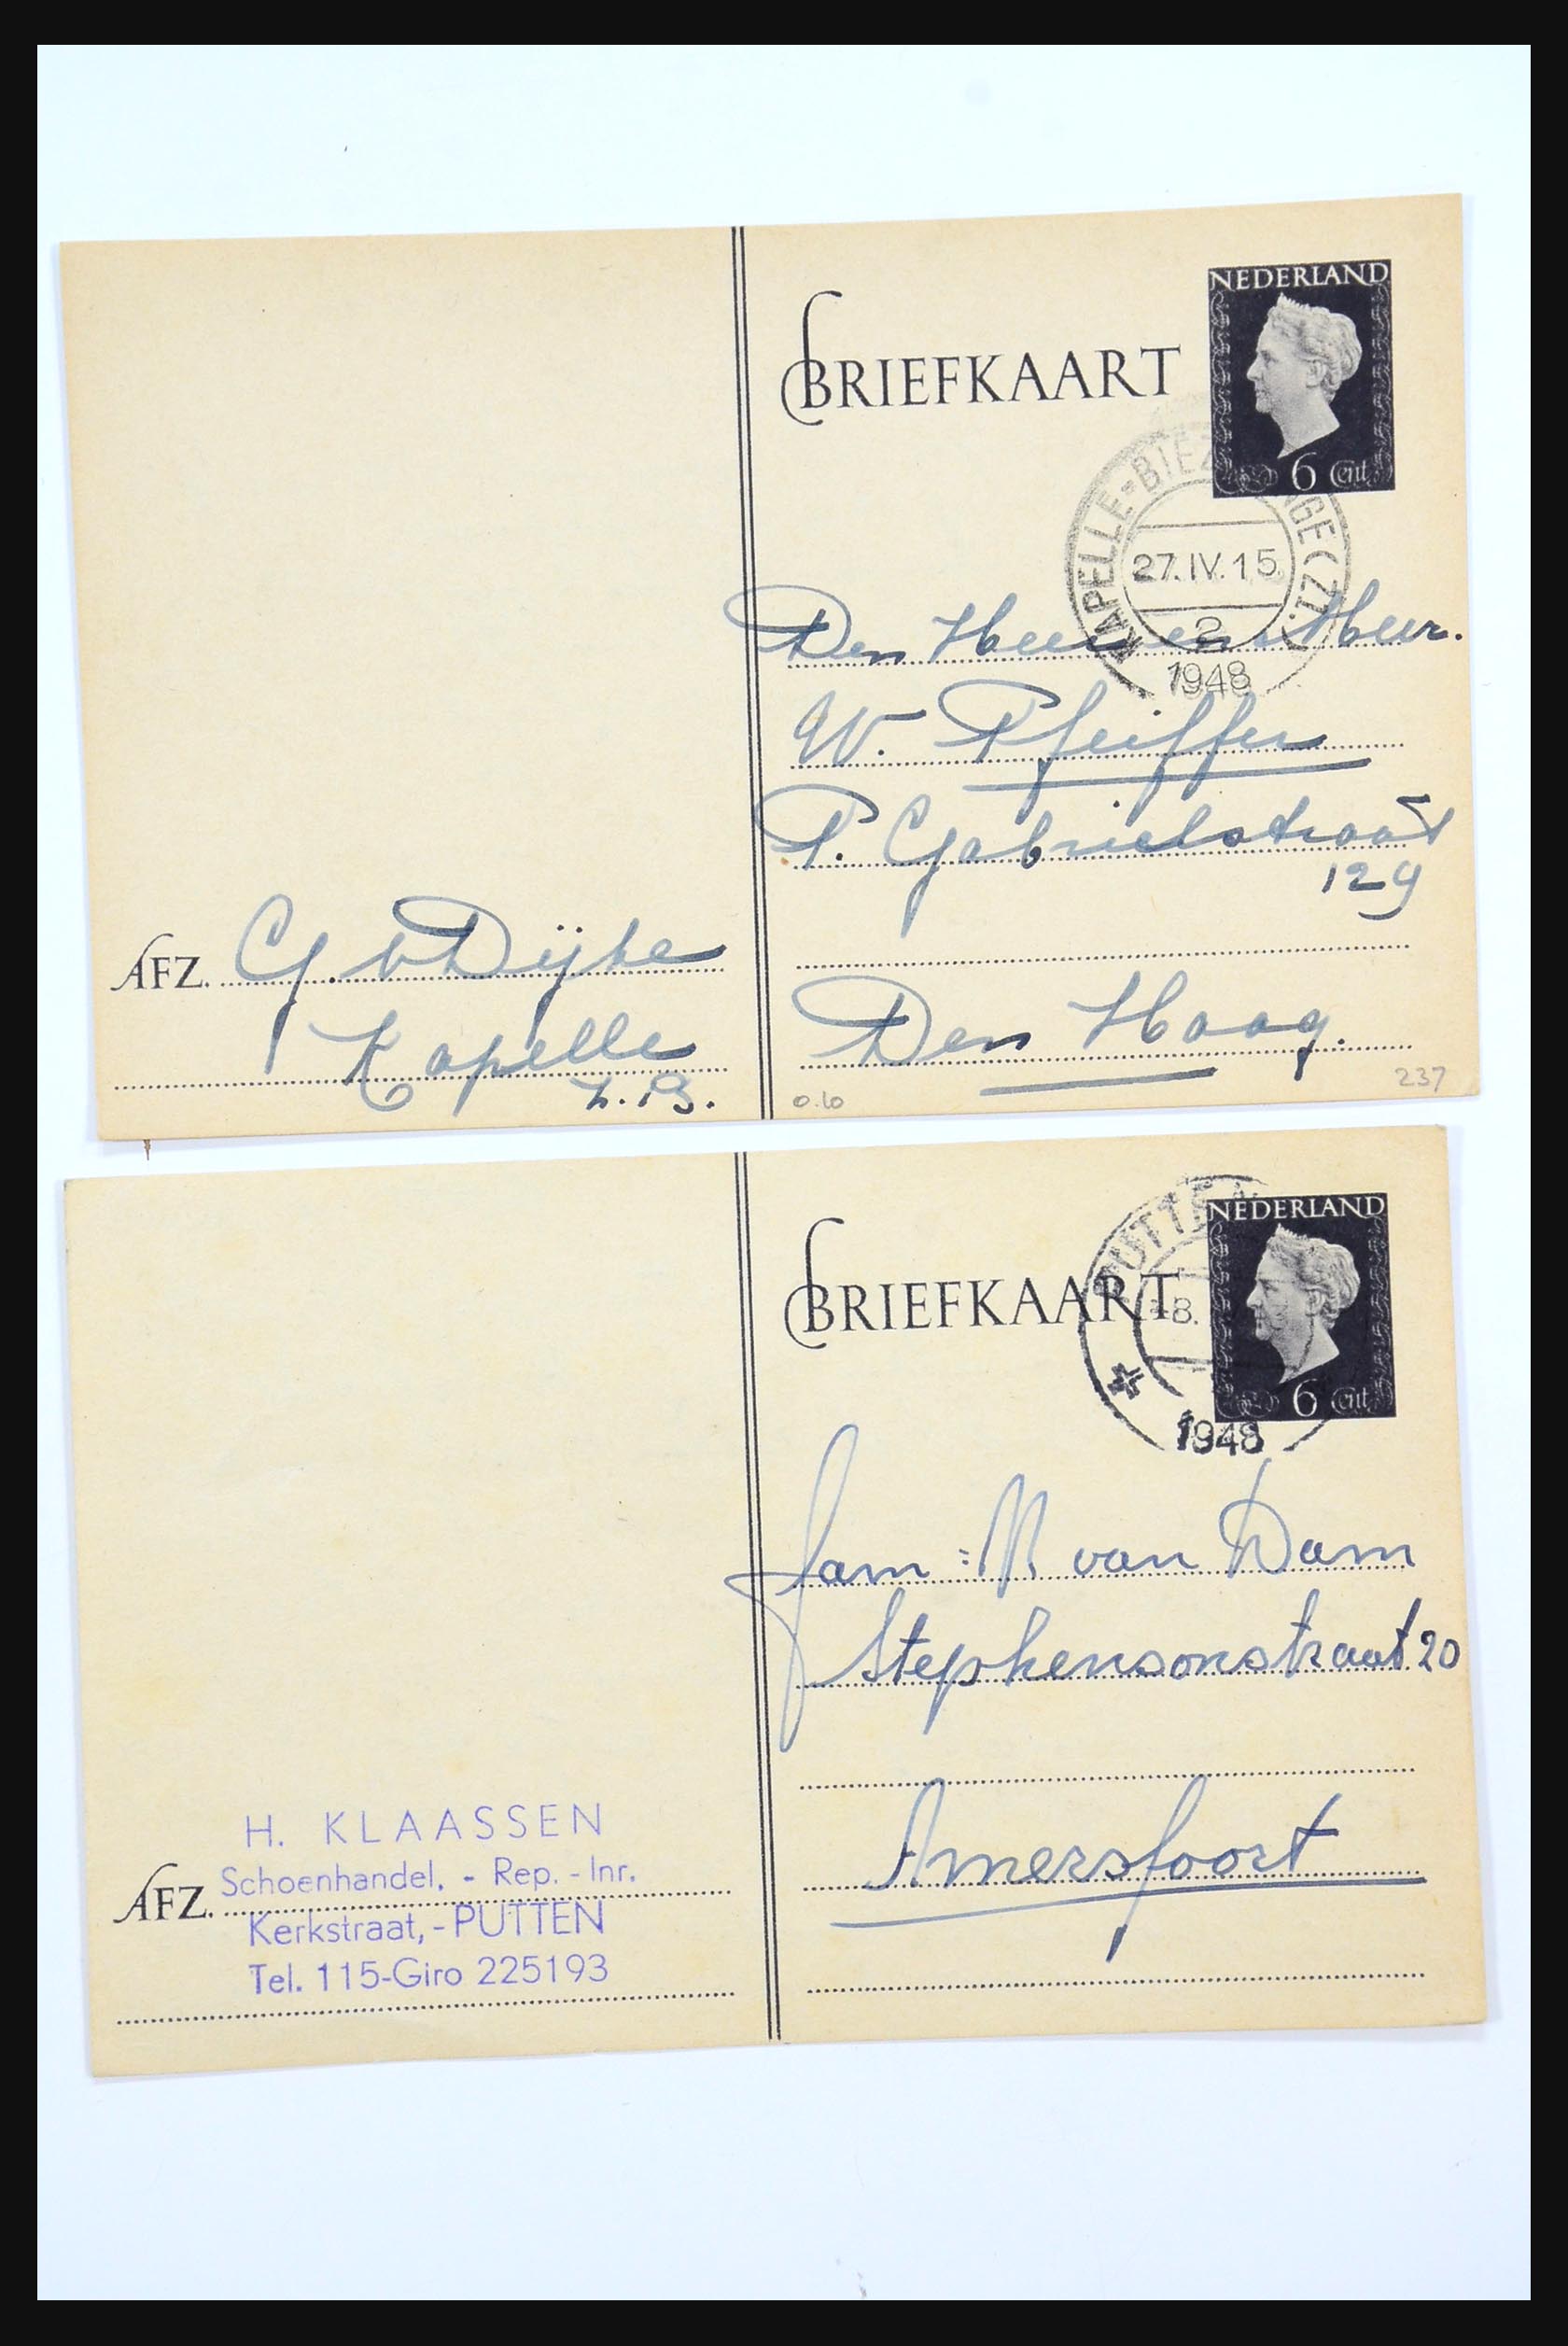 BRIEFKAART
NEDERLAND
6 Cent
KAPELLE-BIEZ NGE (ZL.)
27.IV.15
2
1948
Den Heer en Mevr.
W. Pfeiffer
P. Gabrielstraat
129
Den Haag.
AFZ. G. v Dijke
Kapelle
Z.B.
0.10
237
BRIEFKAART
NEDERLAND
6 Cent
PUTTEN
8.
1948
Fam: M van Dam
Stephensonstraat 20
Amersfoort
H. KLAASSEN
Schoenhandel, - Rep. - Inr.
AFZ.
Kerkstraat, - PUTTEN
Tel. 115-Giro 225193